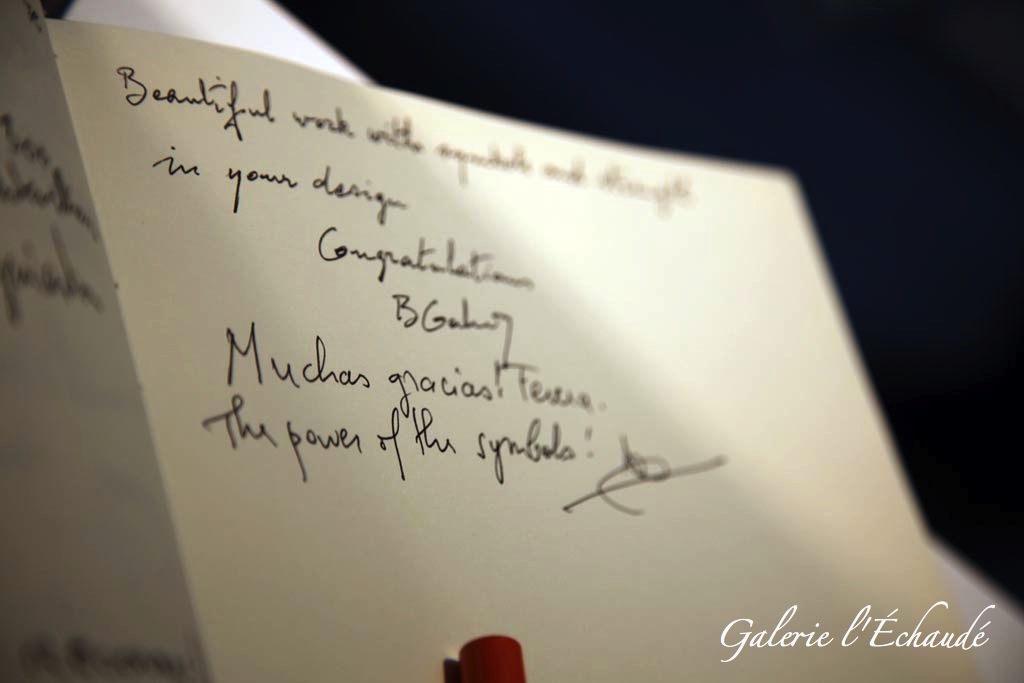 Beautiful work with symbols and strength
in your design
Congratulations
Muchas gracias! Teresa.
The power of the symbols!
Galerie l'Échaudé